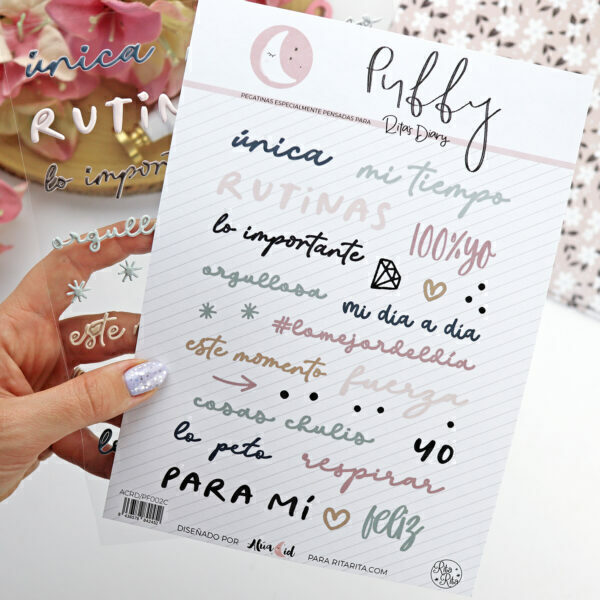 única
RUTIN
lo importan
orgullo
este m
lo
Puffy
PEGATINAS ESPECIALMENTE PENSADAS PARA
Ritas Diary
única mi tiempo
RUTINAS
100%yo
lo importante
orgullosa
mi día a día
#lomejordeldía
este momento fuerza
cosas chulis
yo
lo peto
respirar
PARA MÍ
feliz
ACRD/PF002C
DISEÑADO POR Alúa Cid PARA RITARITA.COM
Rita Rita